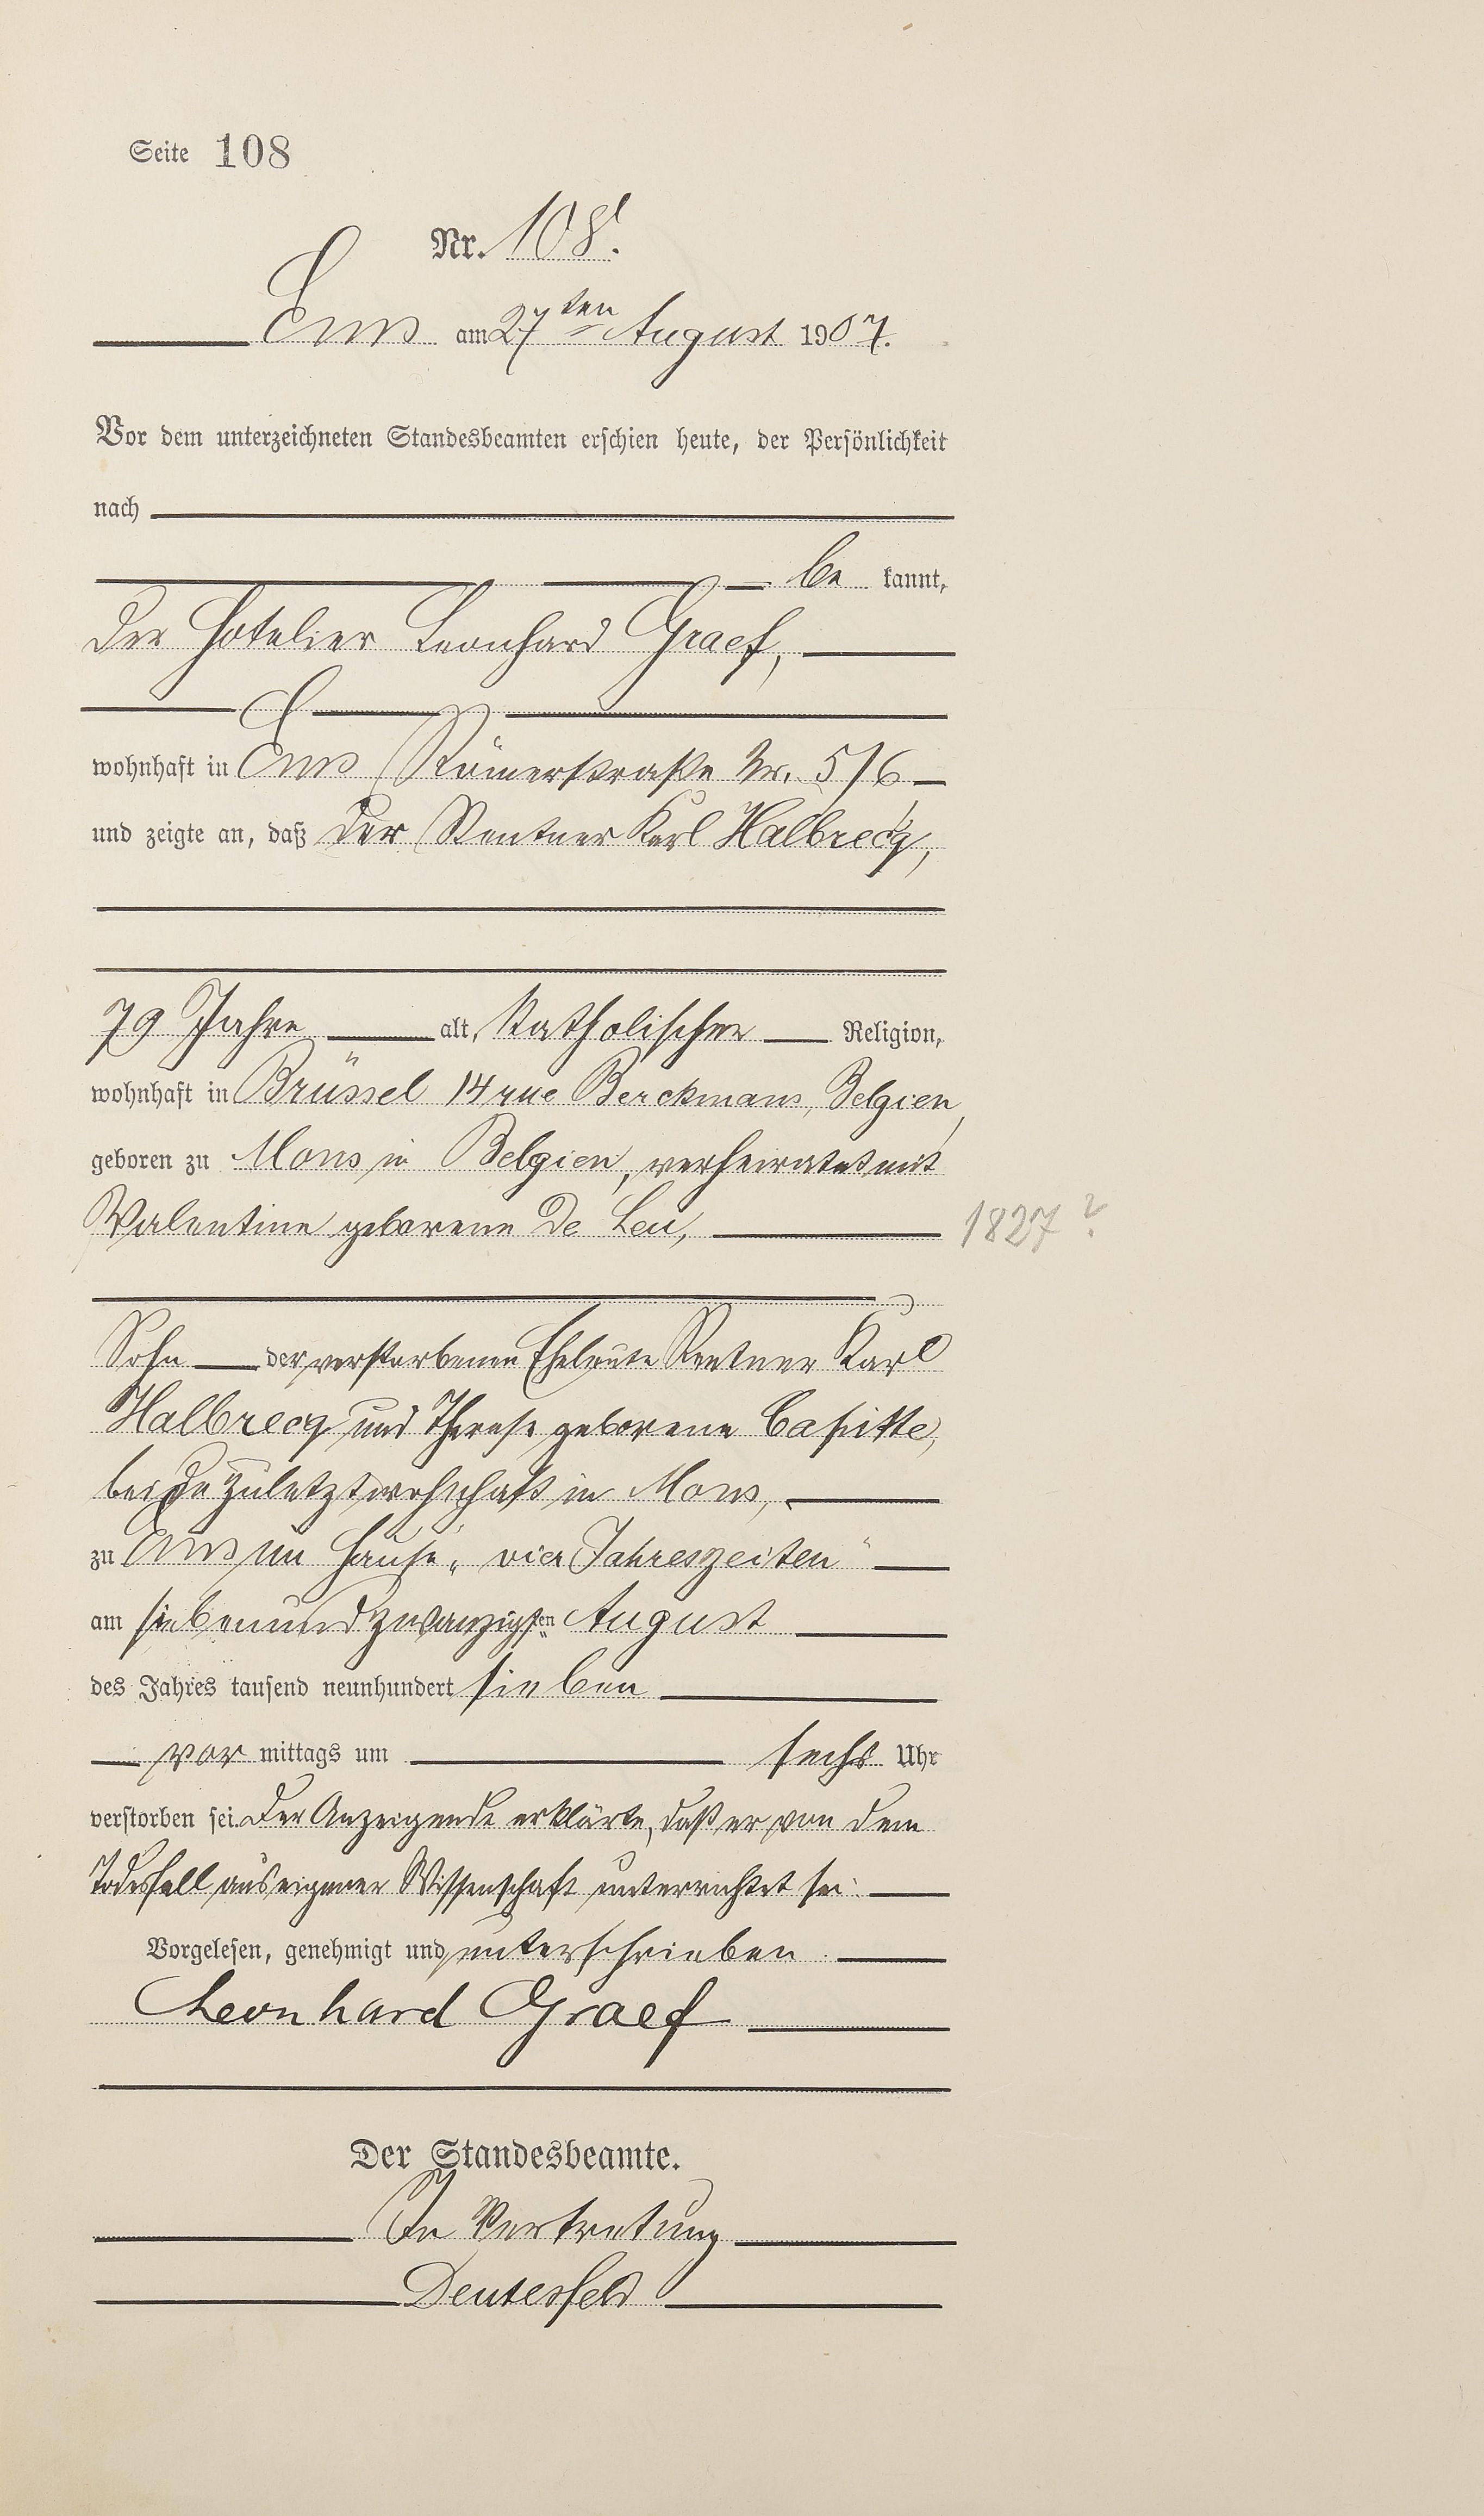 Seite 108
Nr. 108.
Ems am 27ten August 1907.
Vor dem unterzeichneten Standesbeamten erschien heute, der Persönlichkeit
nach
be kannt,
der Hotelier Leonhard Graef,
wohnhaft in Ems Römerstraße Nr. 5/6
und zeigte an, daß der Rentner Karl Halbrecq,
79 Jahre alt, katholischer Religion,
wohnhaft in Brüssel 14 rue Berckmans, Belgien,
geboren zu Mons in Belgien, verheiratet mit
Valentine geborene De Leu,
1827?
Sohn der verstorbenen Eheleute Rentner Karl
Halbrecq und Therese geborene
beide zuletzt wohnhaft in Mons,
zu Ems im Hause „vier Jahreszeiten“
am siebenundzwanzigsten August
des Jahres tausend neunhundert sieben
vor mittags um sechs Uhr
verstorben sei. Der Anzeigende erklärte, daß er von dem
Todesfall aus eigener Wissenschaft unterrichtet sei.
Vorgelesen, genehmigt und unterschrieben.
Leonhard Graef
Der Standesbeamte.
In Vertretung
Deutesfeld